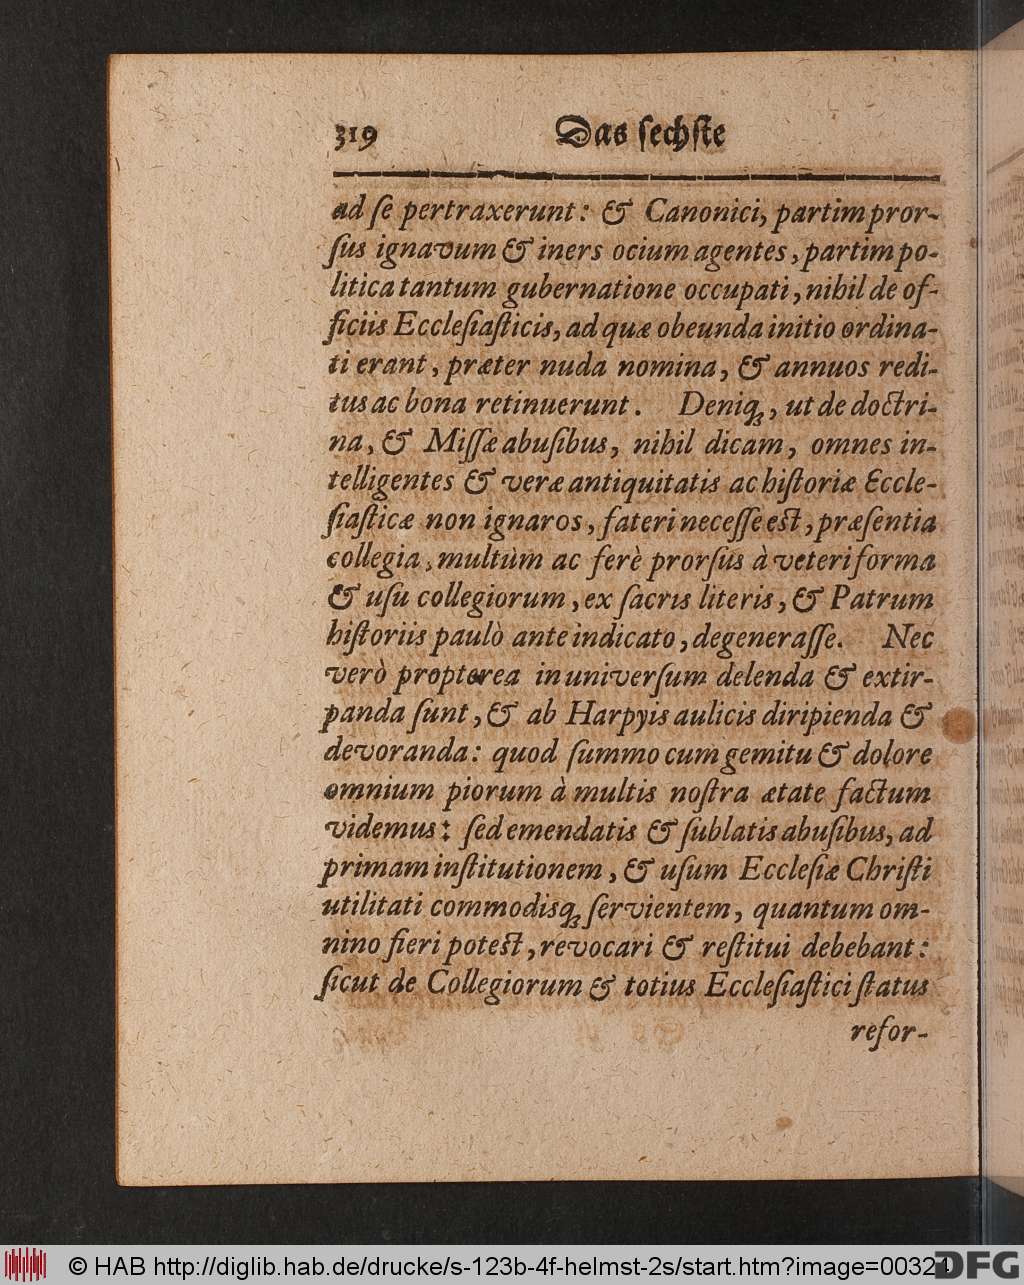 319 Das sechste
ad ſe pertraxerunt: & Canonici, partim pror-
ſus ignavum & iners ocium agentes, partim po-
litica tantum gubernatione occupati, nihil de of-
ficiis Eccleſiaſticis, ad quæ obeunda initio ordina-
ti erant, præter nuda nomina, & annuos redi-
tus ac bona retinuerunt. Deniq́ꝫ, ut de doctri-
na, & Miſſæ abuſibus, nihil dicam, omnes in-
telligentes & veræ antiquitatis ac hiſtoriæ Eccle-
ſiaſticæ non ignaros, fateri neceſſe eſt, præſentia
collegia, multùm ac ferè prorſùs à veteri forma
& uſu collegiorum, ex ſacris literis, & Patrum
hiſtoriis paulò ante indicato, degeneraſſe. Nec
verò propterea in univerſum delenda & extir-
panda ſunt, & ab Harpyis aulicis diripienda &
devoranda: quod ſummo cum gemitu & dolore
omnium piorum à multis noſtra ætate factum
videmus: ſed emendatis & ſublatis abuſibus, ad
primam inſtitutionem, & uſum Eccleſiæ Chriſti
utilitati commodisqꝫ ſervientem, quantum om-
nino fieri poteſt, revocari & reſtitui debebant:
ſicut de Collegiorum & totius Eccleſiaſtici ſtatus
refor-
© HAB http://diglib.hab.de/drucke/s-123b-4f-helmst-2s/start.htm?image=00324
DFG